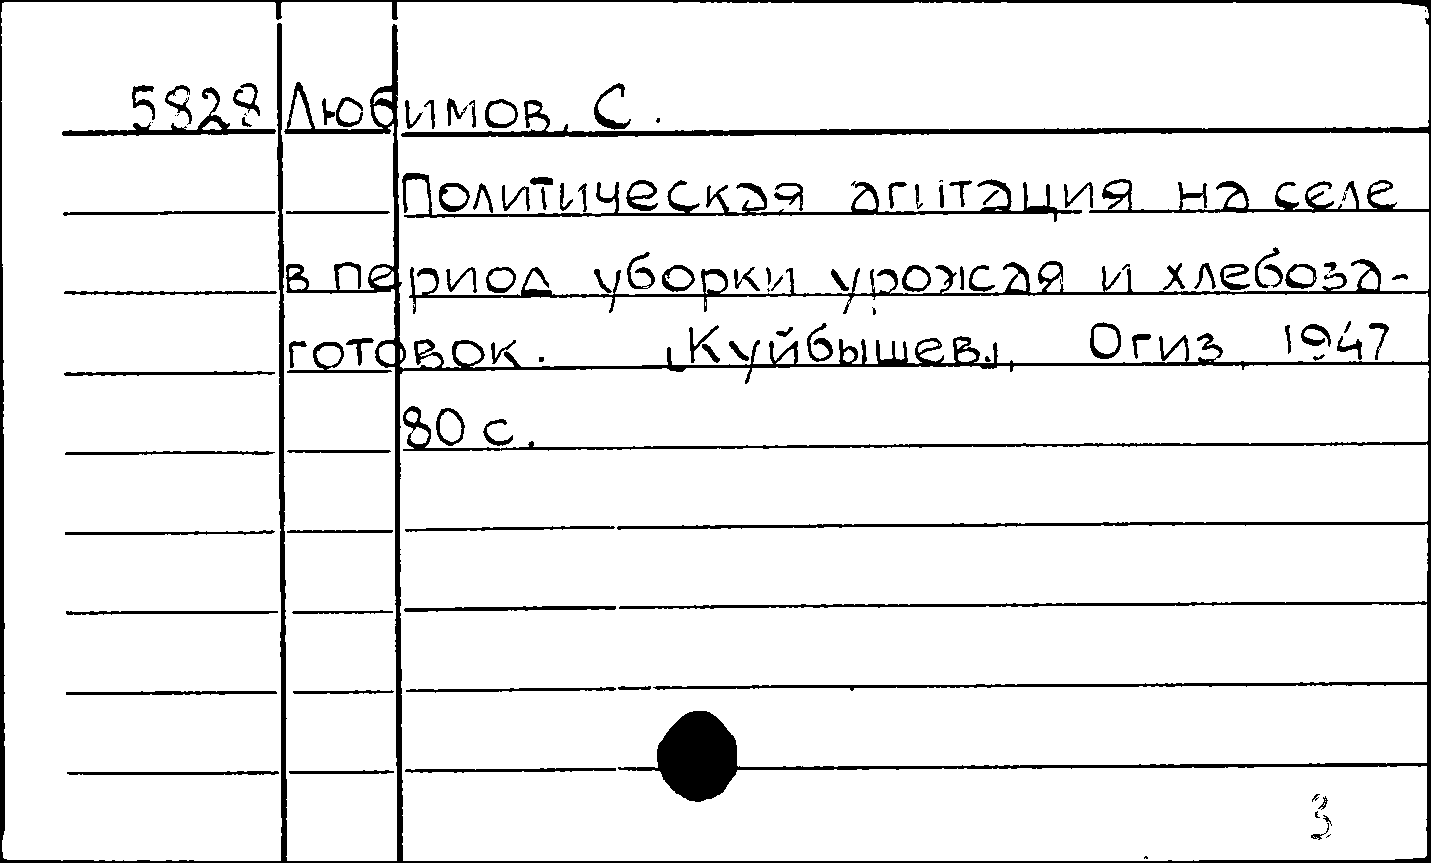 5828 Любимов, С.
Политическая агитация на селе
в период уборки урожая и хлебоза-
готовок. [Куйбышев], Огиз, 1947
80 с.
3